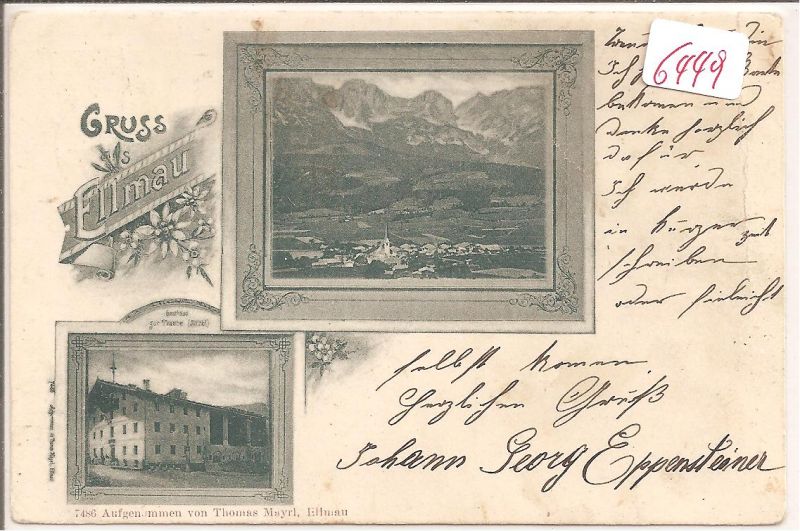 Gruss
aus
Ellmau
Gasthaus
zur Traube
7486 Aufgenommen von Thomas Mayrl, Ellmau
6449
Ich
bekomen und
danke herzlich
dafür
Ich werde
in kürzer zeit
schreiben
oder fieleicht
selbst komen
Herzlichen Gruß
Johann Georg Eppensteiner